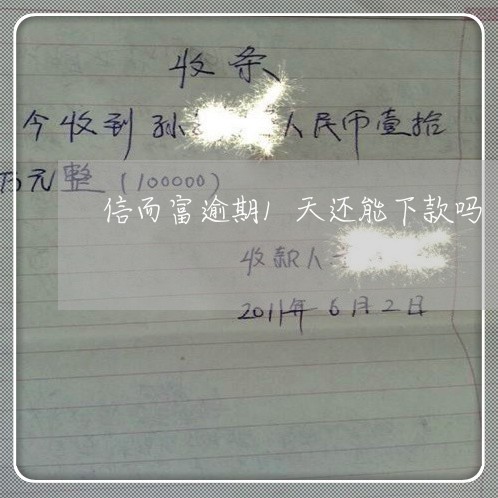 收条
今收到孙人民币壹拾
万元整(100000)
信而富逾期1天还能下款吗
收款人
2011年6月2日